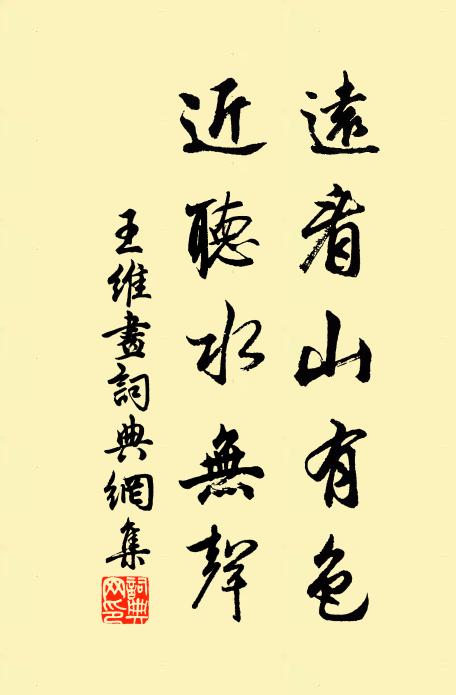 遠看山有色
近聽水無聲
王維畫詞典網集
詞典網印